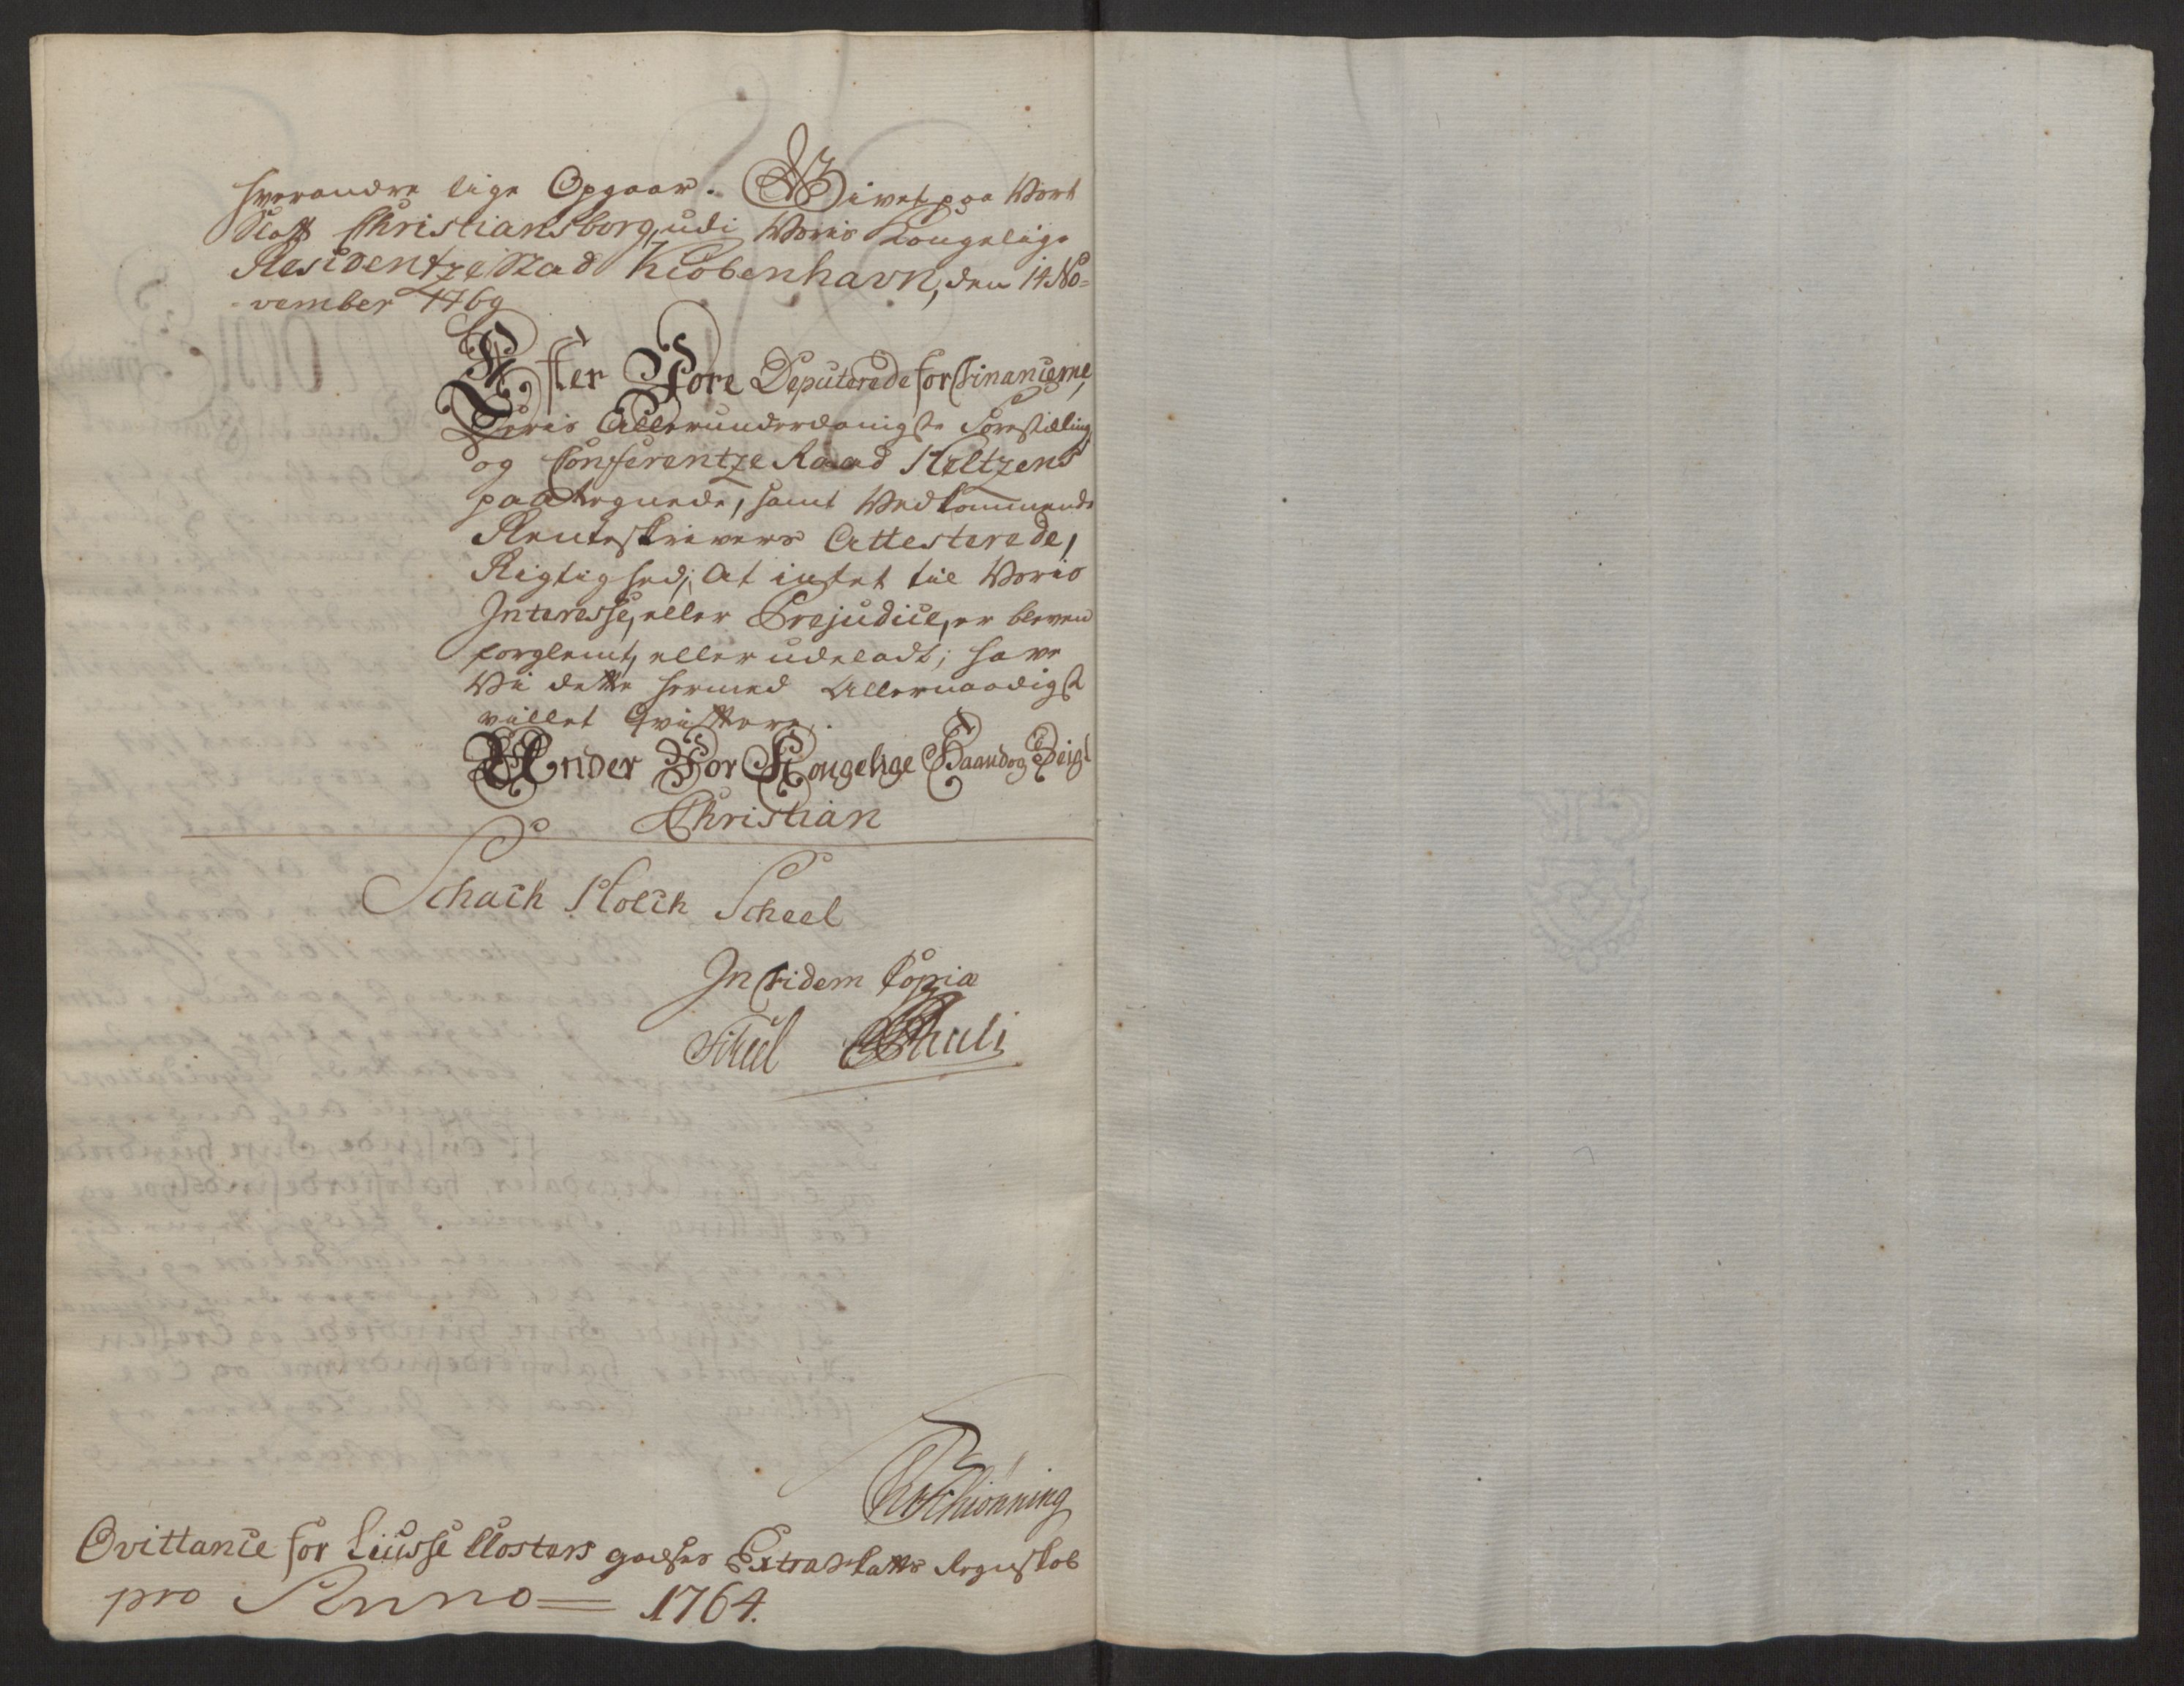 hverandre lige Opgaar. Givet paa Vort
Slott Christiansborg, udi Voris Kongelige
Residentze Stad Kiöbenhavn, den 14 No=
vember 1769
Efter Vore Deputerede for Financierne,
Deris Allerunderdanigste Forestilling
og Conferentze Raad Heltzens
paategnede, samt Vedkommende
Renteskrivers Attesterede,
Rigtighed; At intet til Voris
Interesse, eller Prejudice, er bleven
forglemt, eller udeladt; have
Vi dette hermed Allernaadigst
villet Qvittere.
Under Vor Kongelige Haand og Seigl
Christian
Schach Holck Scheel
In Fidem Copia
Scheel
Schiönning
Qvittance for Liusse Closters godses Extraskatts Regnskab
pro Anno = 1764.